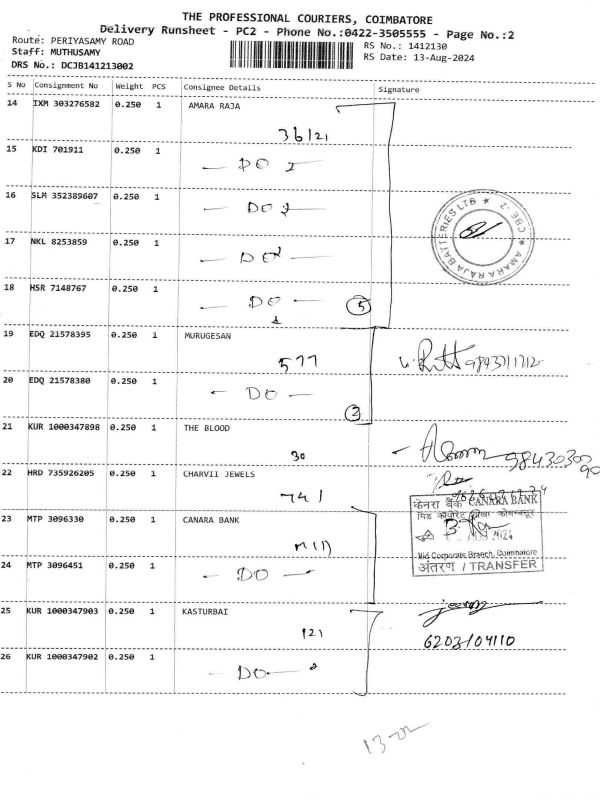 THE PROFESSIONAL COURIERS, COIMBATORE
Delivery Runsheet - PC2 - Phone No.:0422-3505555 - Page No.:2
Route: PERIYASAMY ROAD
RS No.: 1412130
Staff: MUTHUSAMY
RS Date: 13-Aug-2024
DRS No.: DCJB141213002
S No Consignment No Weight PCS Consignee Details Signature
14 IXM 303276582 0.250 1 AMARA RAJA
36/21
15 KDI 701911 0.250 1
— DO —
16 SLM 352389607 0.250 1
— DO —
17 NKL 8253859 0.250 1
— DO —
18 HSR 7148767 0.250 1
— DO — 5
AMARA RAJA BATTERIES LTD ★ CBE-2 ★
19 EDQ 21578395 0.250 1 MURUGESAN
577
20 EDQ 21578380 0.250 1
— DO — 2
21 KUR 1000347898 0.250 1 THE BLOOD
30
22 HRD 735926205 0.250 1 CHARVII JEWELS
741
23 MTP 3096330 0.250 1 CANARA BANK
केनरा बैंक CANARA BANK
मिड कॉर्पोरेट शाखा कोयम्बत्तूर
Mid Corporate Branch, Coimbatore
अंतरण / TRANSFER
24 MTP 3096451 0.250 1
— DO —
25 KUR 1000347903 0.250 1 KASTURBAI
121
6203104110
26 KUR 1000347902 0.250 1
— DO —